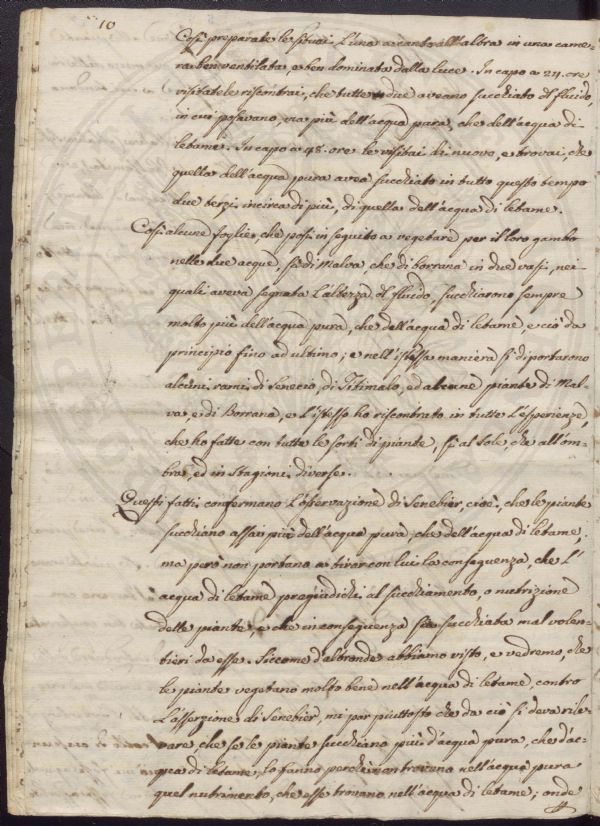 10
Così preparate le situai l'una accanto all'altra in una came-
ra ben ventilata, e ben dominata dalla luce. In capo a 24. ore
visitatele riscontrai, che tutte e due aveano succhiato del fluido,
in cui posavano, via più dell'acqua pura, che dell'acqua di
letame. In capo a 48. ore le visitai di nuovo, e trovai, che
quella dell'acqua pura avea succhiato in tutto questo tempo
due terzi incirca di più, di quella dell'acqua di letame.
Così alcune foglie, che posi in seguito a vegetare per il loro gambo
nelle due acque, sì di Malva che di borrana in due vasi, nei
quali aveva segnata l'altezza del fluido, succhiarono sempre
molto più dell'acqua pura, che dell'acqua di letame, e ciò da
principio fino ad ultimo; e nell'istessa maniera si diportarono
alcuni rami di Senecio, di Titimalo, ed alcune piante di Mal-
va, e di Borrana, e l'istesso ho riscontrato in tutte l'esperienze,
che ho fatte con tutte le sorti di piante, sì al Sole, che all'om-
bra, ed in Stagioni diverse.
Questi fatti confermano l'osservazione di Senebier, cioè, che le piante
succhiano assai più dell'acqua pura, che dell'acqua di letame,
ma però non portano a tirar con lui la conseguenza, che l'
acqua di letame pregiudichi al succhiamento, o nutrizione
delle piante, e che in conseguenza sia succhiata mal volen-
tieri da esse. Siccome d'altronde abbiamo visto, e vedremo, che
le piante vegetano molto bene nell'acqua di letame, contro
l'asserzione di Senebier, mi par piuttosto che da ciò si deva rile-
vare, che se le piante succhiano più d'acqua pura, che d'ac-
qua di letame, lo fanno perchè non trovano nell'acqua pura
quel nutrimento, che esse trovano nell'acqua di letame; onde